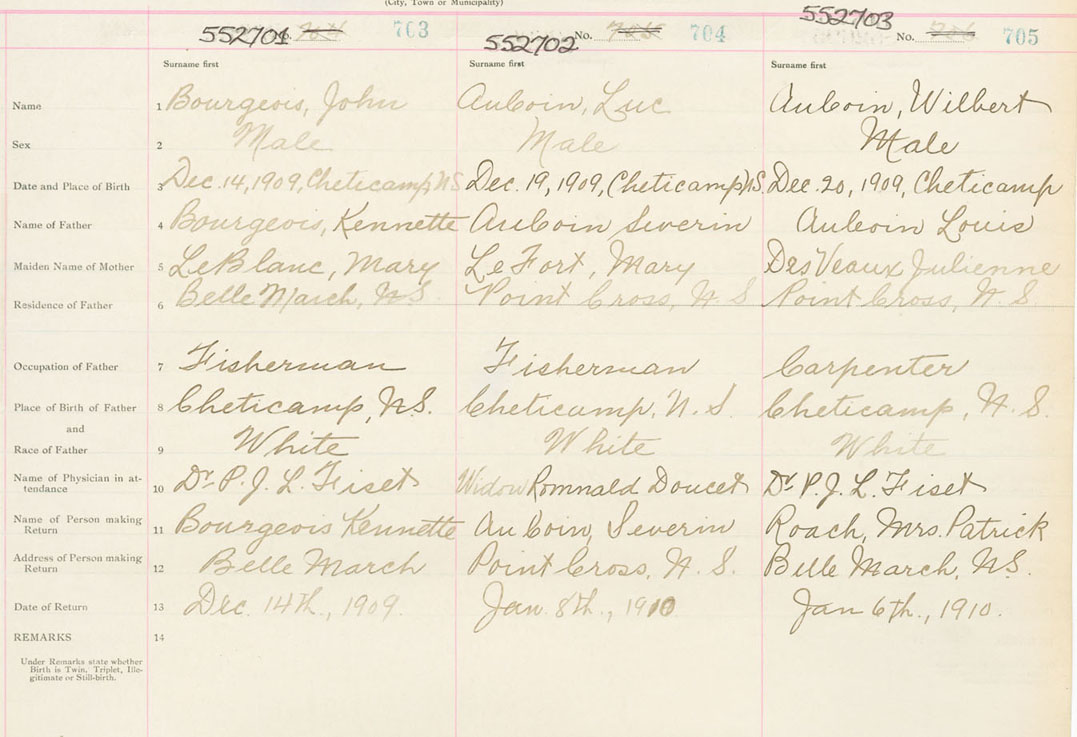 (City, Town or Municipality)
552701 763
552702 No. 704
552703 No. 705
Surname first Surname first Surname first
Name 1 Bourgeois, John AuCoin, Luc AuCoin, Wilbert
Sex 2 Male Male Male
Date and Place of Birth 3 Dec. 14, 1909, Cheticamp NS Dec. 19, 1909, (Cheticamp) N.S. Dec. 20, 1909, Cheticamp
Name of Father 4 Bourgeois, Kennette AuCoin Severin AuCoin Louis
Maiden Name of Mother 5 LeBlanc, Mary LeFort, Mary DesVeaux Julienne
Residence of Father 6 Belle March, N.S. Point Cross, N. S Point Cross, N. S.
Occupation of Father 7 Fisherman Fisherman Carpenter
Place of Birth of Father 8 Cheticamp, N.S. Cheticamp, N. S. Cheticamp, N. S.
and
Race of Father 9 White White White
Name of Physician in at-
tendance 10 Dr. P. J. L. Fiset Widow Romnald Doucet Dr. P. J. L. Fiset
Name of Person making
Return 11 Bourgeois Kennette AuCoin, Severin Roach, Mrs. Patrick
Address of Person making
Return 12 Belle March Point Cross, N. S. Belle March, N.S.
Date of Return 13 Dec. 14th., 1909. Jan. 8th., 1910 Jan 6th., 1910.
REMARKS 14
Under Remarks state whether
Birth is Twin, Triplet, Ille-
gitimate or Still-birth.